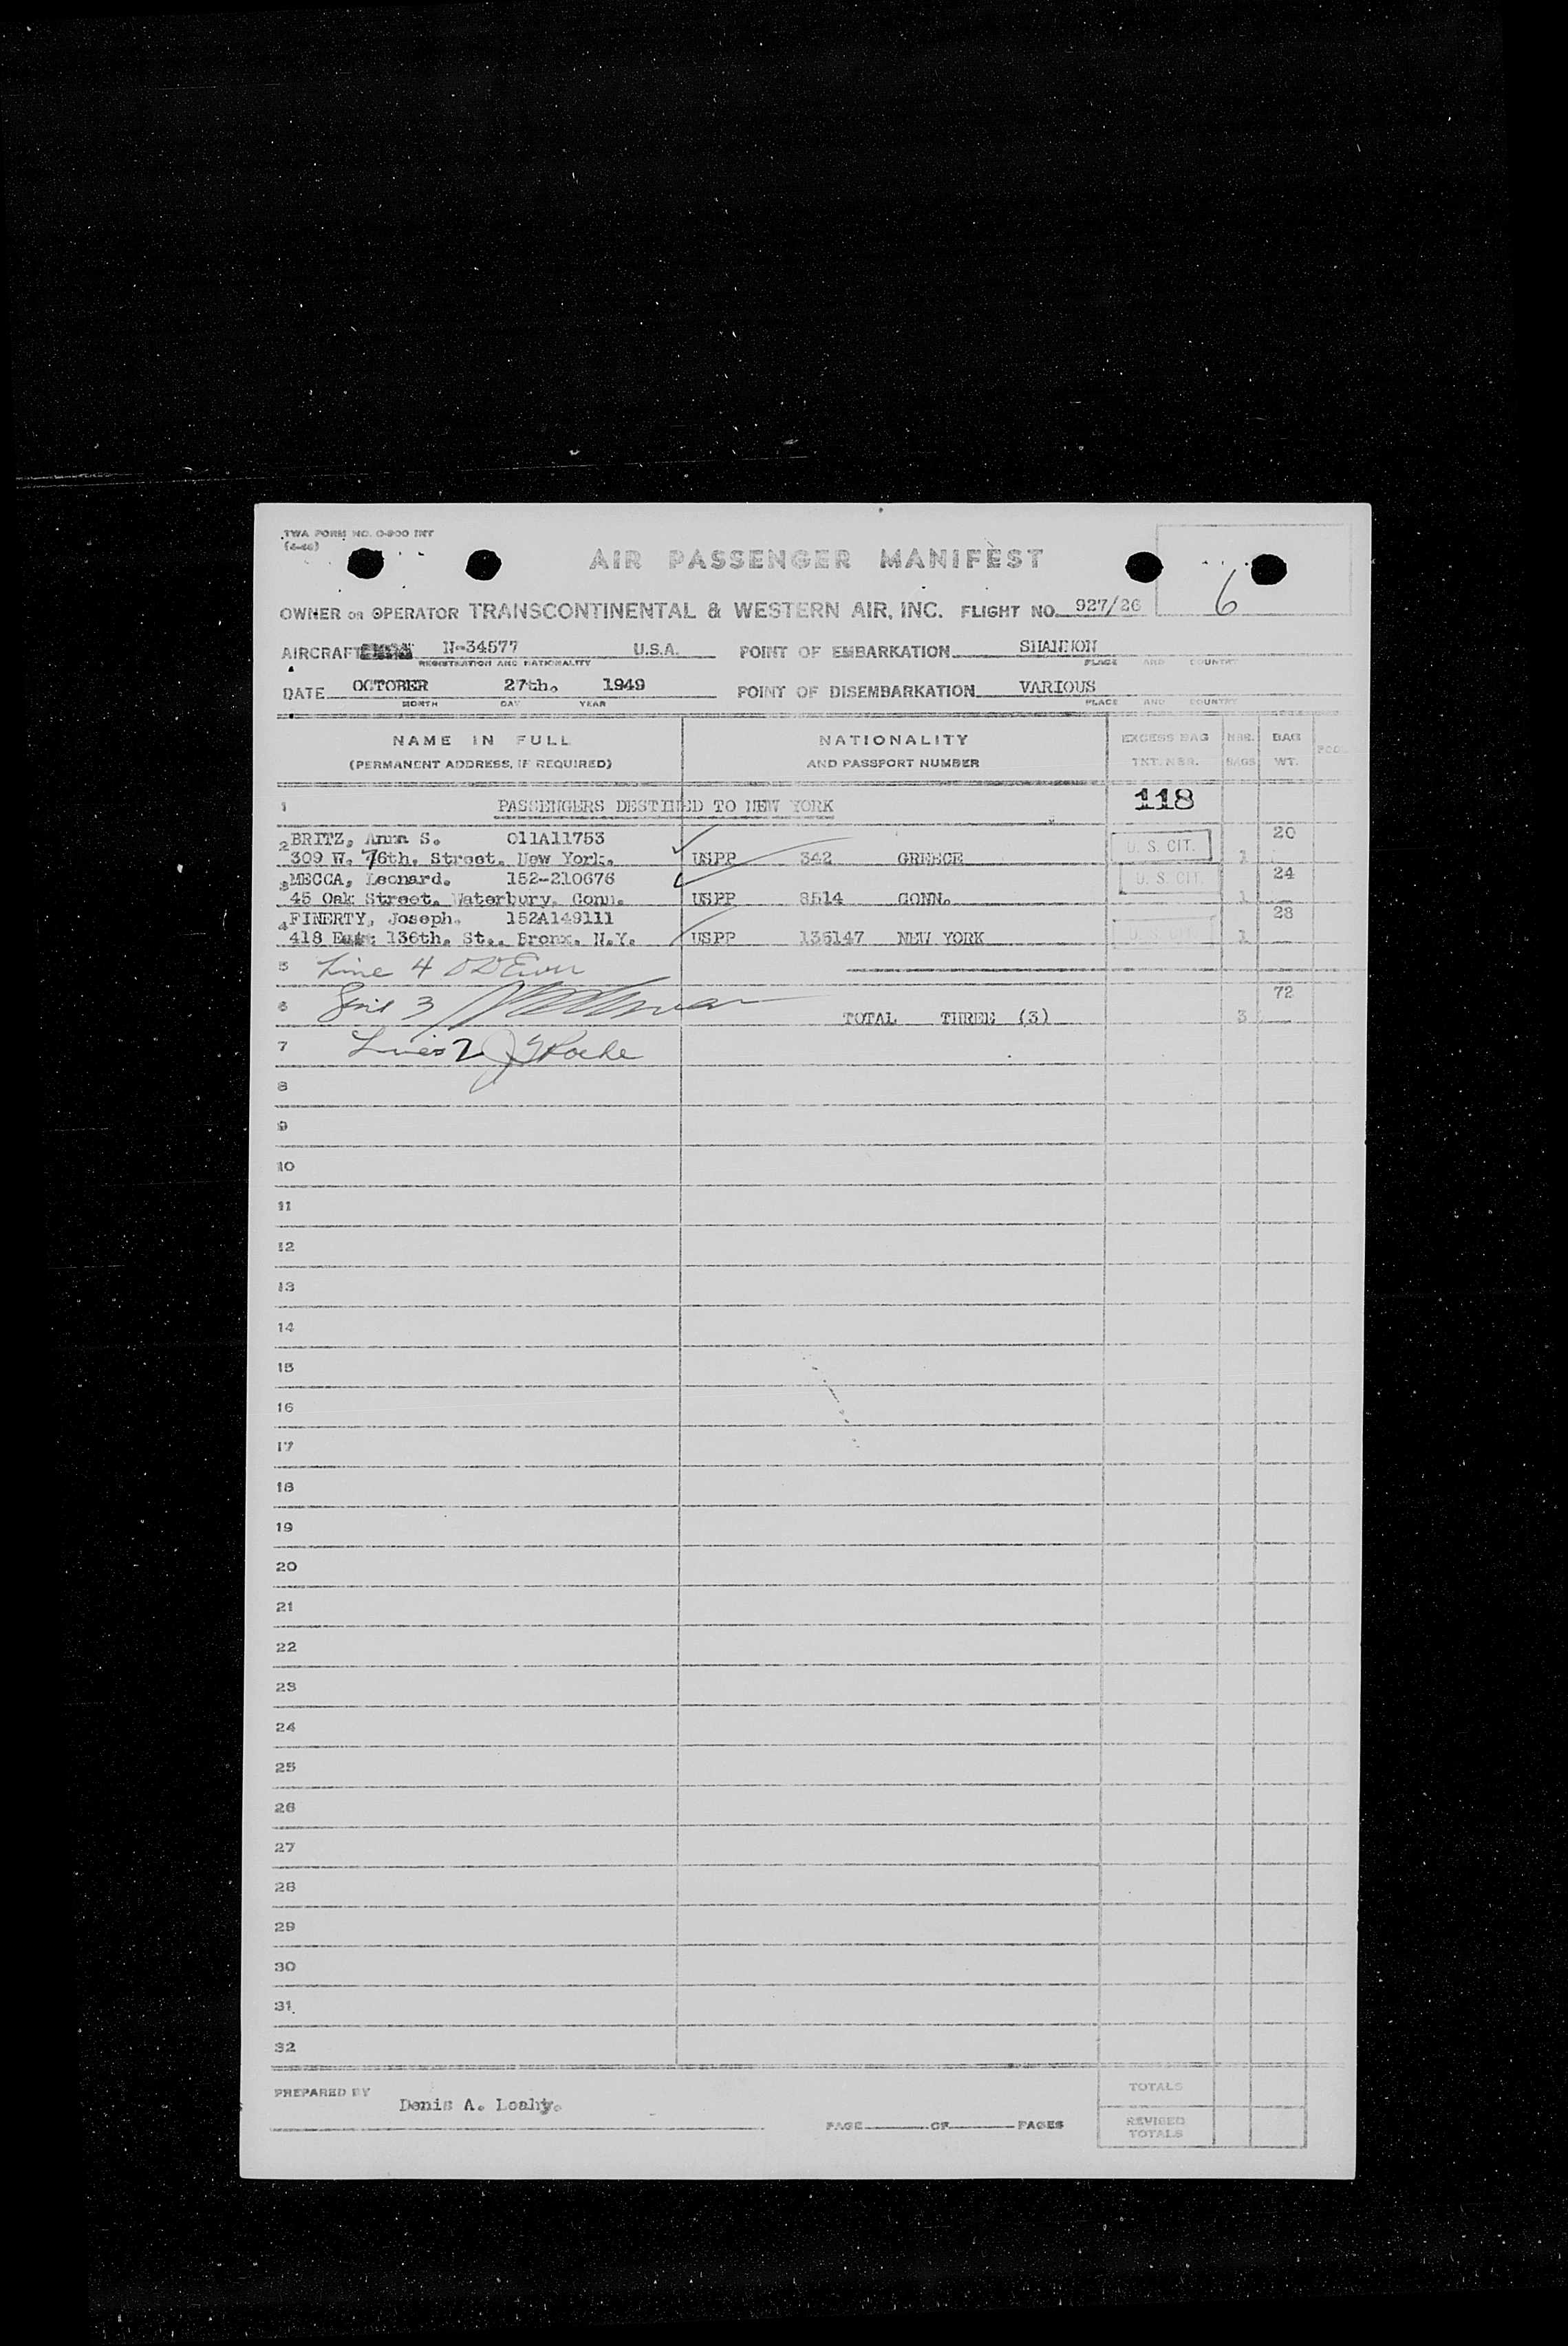 TWA FORM NO. O-900 INT
(4-46)
AIR PASSENGER MANIFEST
6
OWNER OR OPERATOR TRANSCONTINENTAL & WESTERN AIR, INC. FLIGHT NO. 927/26
AIRCRAFT N-34577 U.S.A. POINT OF EMBARKATION SHANNON
REGISTRATION AND NATIONALITY PLACE AND COUNTRY
DATE OCTOBER 27th. 1949 POINT OF DISEMBARKATION VARIOUS
MONTH DAY YEAR PLACE AND COUNTRY
NAME IN FULL NATIONALITY EXCESS BAG NBR. BAG
(PERMANENT ADDRESS, IF REQUIRED) AND PASSPORT NUMBER TKT. NBR. BAGS WT.
1 PASSENGERS DESTINED TO NEW YORK 118
2 BRITZ, Anna S. 011A11753 U. S. CIT. 20
309 W. 76th. Street. New York. USPP 342 GREECE 1
3 MECCA, Leonard. 152-210676 U. S. CIT. 24
45 Oak Street. Waterbury. Conn. USPP 8514 CONN. 1
4 FINERTY, Joseph. 152A149111 U. S. CIT. 28
418 East 136th. St.. Bronx. N.Y. USPP 136147 NEW YORK 1
5 Line 4
6 Line 3 72
TOTAL THREE (3) 3
7 Lines 2 Roche
8
9
10
11
12
13
14
15
16
17
18
19
20
21
22
23
24
25
26
27
28
29
30
31
32
PREPARED BY Denis A. Leahy. TOTALS
PAGE OF PAGES REVISED
TOTALS